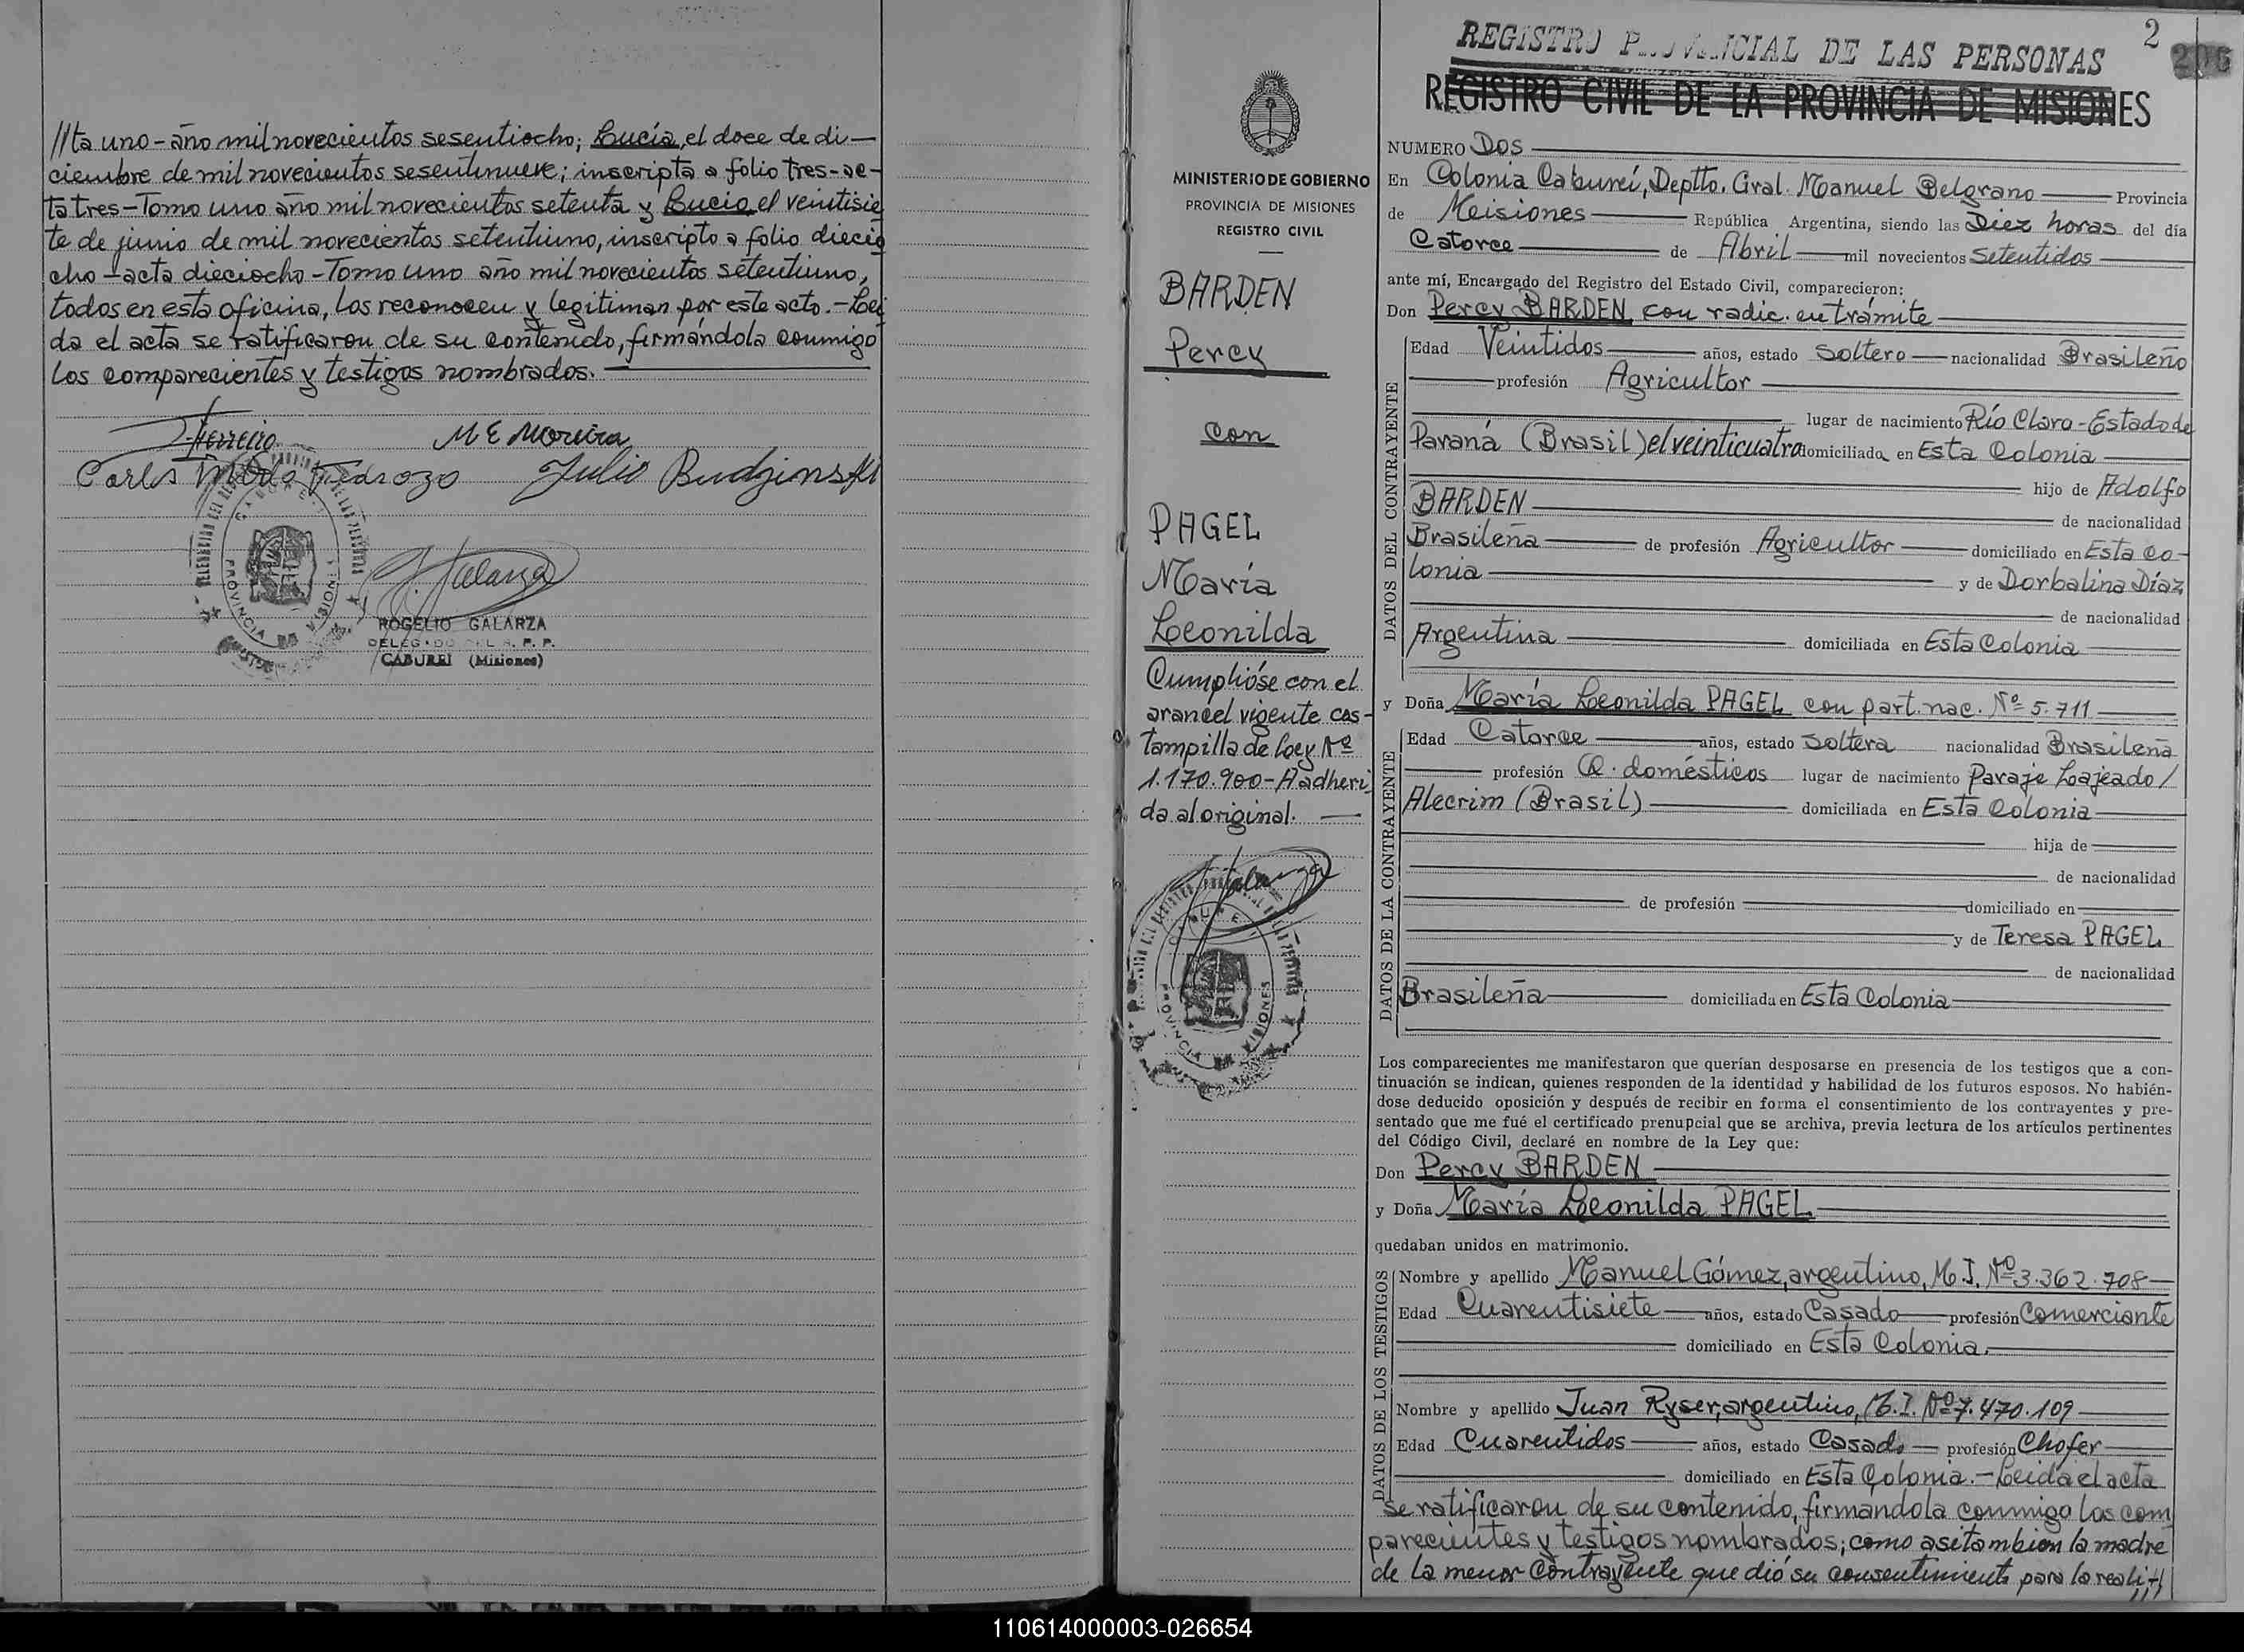 //ta uno-año mil novecientos sesentiocho; Lucía, el doce de di-
ciembre de mil novecientos sesentinueve; inscripta a folio tres-ac-
ta tres-Tomo uno año mil novecientos setenta y Lucio el veintisie
te de junio de mil novecientos setentiuno, inscripto a folio diecio
cho-acta dieciocho-Tomo uno año mil novecientos setentiuno,
todos en esta oficina, los reconocen y legitiman por este acto.-Leí
da el acta se ratificaron de su contenido, firmándola conmigo
los comparecientes y testigos nombrados.
M E Moreira
Julio Budzinski
PROVINCIA DE MISIONES
ROGELIO GALARZA
DELEGADO DEL R. P. P.
CABUREI (Misiones)
MINISTERIO DE GOBIERNO
PROVINCIA DE MISIONES
REGISTRO CIVIL
BARDEN
Percy
con
PAGEL
María
Leonilda
Cumplióse con el
arancel vigente cas-
tampilla de Ley Nº
1.170.900-Aadheri
da al original.
PROVINCIA DE MISIONES
2
206
REGISTRO PROVINCIAL DE LAS PERSONAS
REGISTRO CIVIL DE LA PROVINCIA DE MISIONES
NUMERO Dos
En Colonia Cabureí, Deptto. Gral. Manuel Belgrano Provincia
de Misiones República Argentina, siendo las Diez horas del día
Catorce de Abril mil novecientos Setentidos
ante mí, Encargado del Registro del Estado Civil, comparecieron:
Don Percy BARDEN, con radic. en trámite
DATOS DEL CONTRAYENTE
Edad Veintidos años, estado Soltero nacionalidad Brasileño
profesión Agricultor
lugar de nacimiento Río Claro-Estado de
Paraná (Brasil) el veinticuatro domiciliado en Esta Colonia
hijo de Adolfo
BARDEN
de nacionalidad
Brasileña de profesión Agricultor domiciliado en Esta Co-
lonia y de Dorbalina Díaz
de nacionalidad
Argentina domiciliada en Esta Colonia
y Doña María Leonilda PAGEL con part. nac. Nº 5.711
DATOS DE LA CONTRAYENTE
Edad Catorce años, estado Soltera nacionalidad Brasileña
profesión Q. domésticos lugar de nacimiento Paraje Lajeado/
Alecrim (Brasil) domiciliada en Esta Colonia
hija de
de nacionalidad
de profesión domiciliado en
y de Teresa PAGEL
de nacionalidad
Brasileña domiciliada en Esta Colonia
Los comparecientes me manifestaron que querían desposarse en presencia de los testigos que a con-
tinuación se indican, quienes responden de la identidad y habilidad de los futuros esposos. No habién-
dose deducido oposición y después de recibir en forma el consentimiento de los contrayentes y pre-
sentado que me fué el certificado prenupcial que se archiva, previa lectura de los artículos pertinentes
del Código Civil, declaré en nombre de la Ley que:
Don Percy BARDEN
y Doña María Leonilda PAGEL
quedaban unidos en matrimonio.
DATOS DE LOS TESTIGOS
Nombre y apellido Manuel Gómez, argentino, M.I. Nº 3.362.708
Edad Cuarentisiete años, estado Casado profesión Comerciante
domiciliado en Esta Colonia.
Nombre y apellido Juan Ryser, argentino, M.I. Nº 7.470.109
Edad Cuarentidos años, estado Casado profesión Chofer
domiciliado en Esta Colonia.-Leída el acta
se ratificaron de su contenido, firmándola conmigo los com
parecientes y testigos nombrados; como asitambien la madre
de la menor contrayente que dió su consentimiento para la reali-//
110614000003-026654